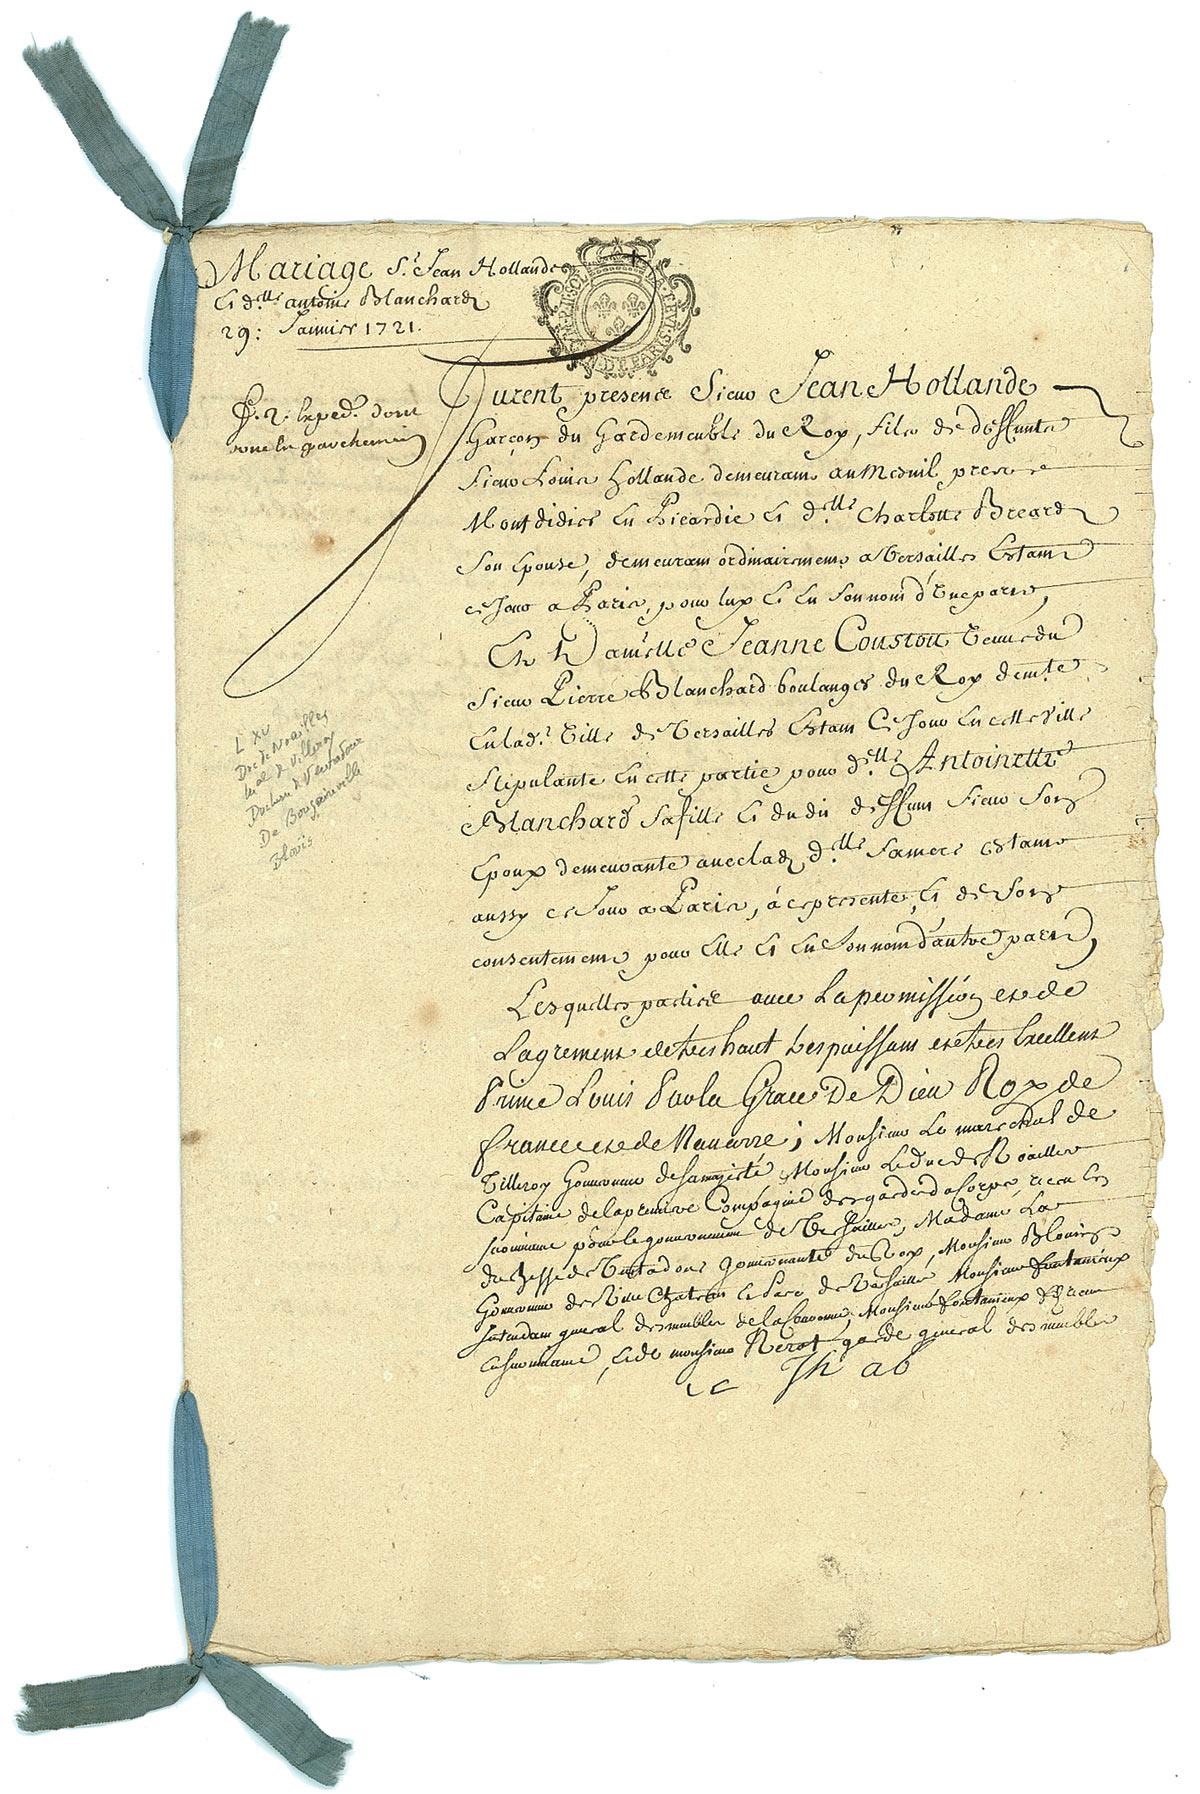 Mariage Sr. Jean Hollande
et delle antoine Blanchard
29: Januier 1721.
GEN. DE PARIS
2. exped. dont
vne en parchemin
Furent presens Sieur Jean Hollande
Garçon du Gardemeuble du Roy, fils de deffunts
Sieur Louis Hollande demeurant au Mesnil pres
Montdidier En Picardie et delle Charlotte Breard
Son Epouse, demeurant ordinairement a Versailles Estant
ce Jour a Paris, pour luy et En Son nom d'Une part,
Et Damelle Jeanne Coustou Veuve du
Sieur Pierre Blanchard boulanger du Roy demte
En lad. Ville de Versailles Estant Ce Jour En cette Ville
Stipulante En cette partie pour delle Antoinette
Blanchard Sa fille et dudit deffunt Sieur Son
Epoux demeurante avec lad delle Sa mere estant
aussy ce Jour a Paris, à ce presente, et de Son
consentement pour Elle et En Son nom d'autre part,
Lesquelles parties avec La permission et de
L'agrement de tres haut tres puissant et tres Excellent
Prince Louis Par la Grace De Dieu Roy de
france et de Navarre; Monsieur Le marechal de
Villeroy Gouverneur de Sa majesté, Monsieur Le Duc de Noailles
Capitaine de la premiere Compagnie des gardes du Corps, et en
survivance pour le gouvernement de Versailles, Madame La
duchesse de Ventadour gouvernante du Roy, Monsieur Blouin
Gouverneur des Ville Chateau et Parc de Versailles Monsieur fontanieux
Intendant general des meubles de la Couronne, Monsieur fontanieux
en survivance, et de monsieur Nerot garde general des meubles
L XV
Duc de Noailles
mal de Villeroy
Duchesse de Ventadour
De Bougainville
Blouis